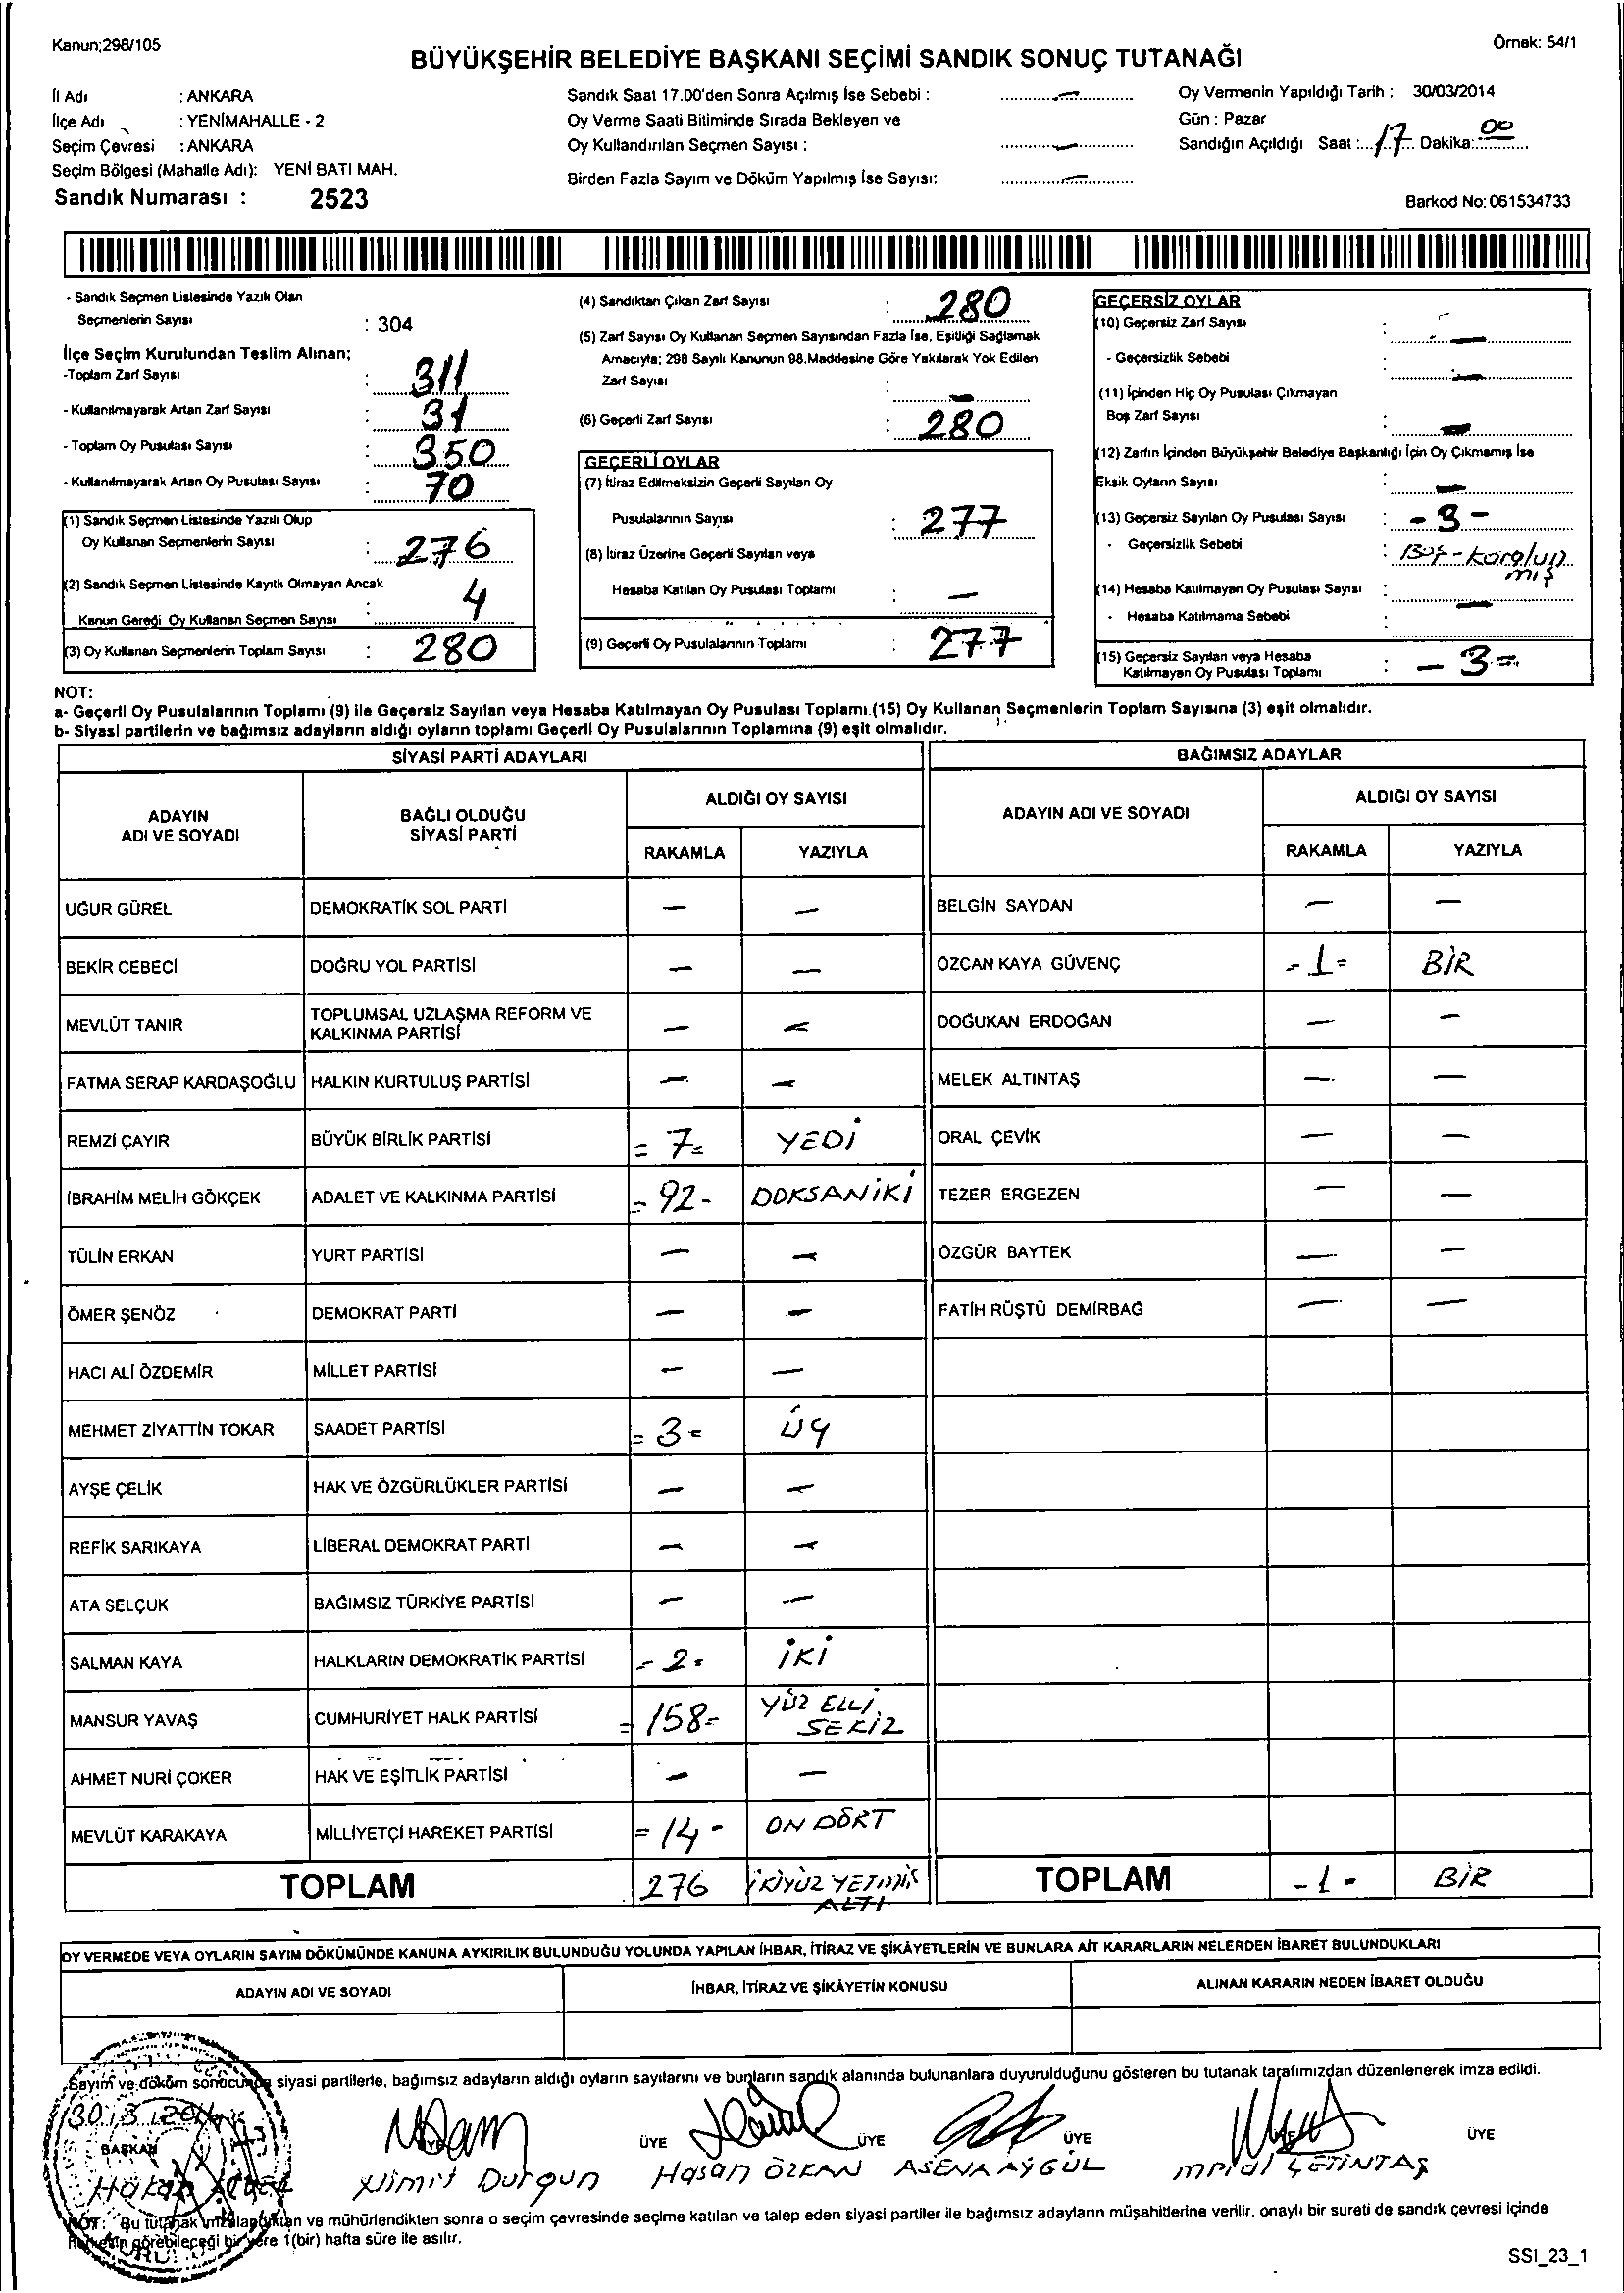 Kanun;298/105
Örnek: 54/1
BÜYÜKŞEHİR BELEDİYE BAŞKANI SEÇİMİ SANDIK SONUÇ TUTANAĞI
İl Adı : ANKARA
İlçe Adı : YENİMAHALLE - 2
Seçim Çevresi : ANKARA
Seçim Bölgesi (Mahalle Adı): YENİ BATI MAH.
Sandık Numarası : 2523
Sandık Saat 17.00'den Sonra Açılmış İse Sebebi : —
Oy Verme Saati Bitiminde Sırada Bekleyen ve
Oy Kullandırılan Seçmen Sayısı : —
Birden Fazla Sayım ve Döküm Yapılmış İse Sayısı: —
Oy Vermenin Yapıldığı Tarih : 30/03/2014
Gün : Pazar
Sandığın Açıldığı Saat :...17... Dakika:...00...
Barkod No: 061534733
- Sandık Seçmen Listesinde Yazılı Olan
Seçmenlerin Sayısı : 304
İlçe Seçim Kurulundan Teslim Alınan;
-Toplam Zarf Sayısı : 311
- Kullanılmayarak Artan Zarf Sayısı : 31
- Toplam Oy Pusulası Sayısı : 350
- Kullanılmayarak Artan Oy Pusulası Sayısı : 70
(1) Sandık Seçmen Listesinde Yazılı Olup
Oy Kullanan Seçmenlerin Sayısı : 276
(2) Sandık Seçmen Listesinde Kayıtlı Olmayan Ancak
Kanun Gereği Oy Kullanan Seçmen Sayısı : 4
(3) Oy Kullanan Seçmenlerin Toplam Sayısı : 280
(4) Sandıktan Çıkan Zarf Sayısı : 280
(5) Zarf Sayısı Oy Kullanan Seçmen Sayısından Fazla İse, Eşitliği Sağlamak
Amacıyla; 298 Sayılı Kanunun 98.Maddesine Göre Yakılarak Yok Edilen
Zarf Sayısı : —
(6) Geçerli Zarf Sayısı : 280
GEÇERLİ OYLAR
(7) İtiraz Edilmeksizin Geçerli Sayılan Oy
Pusulalarının Sayısı : 277
(8) İtiraz Üzerine Geçerli Sayılan veya
Hesaba Katılan Oy Pusulası Toplamı : —
(9) Geçerli Oy Pusulalarının Toplamı : 277
GEÇERSİZ OYLAR
(10) Geçersiz Zarf Sayısı : —
- Geçersizlik Sebebi : —
(11) İçinden Hiç Oy Pusulası Çıkmayan
Boş Zarf Sayısı : —
(12) Zarfın İçinden Büyükşehir Belediye Başkanlığı İçin Oy Çıkmamış İse
Eksik Oyların Sayısı : —
(13) Geçersiz Sayılan Oy Pusulası Sayısı : - 3 -
- Geçersizlik Sebebi : Boş - karalan
mış
(14) Hesaba Katılmayan Oy Pusulası Sayısı : —
- Hesaba Katılmama Sebebi :
(15) Geçersiz Sayılan veya Hesaba
Katılmayan Oy Pusulası Toplamı : - 3 =
NOT:
a- Geçerli Oy Pusulalarının Toplamı (9) ile Geçersiz Sayılan veya Hesaba Katılmayan Oy Pusulası Toplamı (15) Oy Kullanan Seçmenlerin Toplam Sayısına (3) eşit olmalıdır.
b- Siyasi partilerin ve bağımsız adayların aldığı oyların toplamı Geçerli Oy Pusulalarının Toplamına (9) eşit olmalıdır.
SİYASİ PARTİ ADAYLARI BAĞIMSIZ ADAYLAR
ADAYIN
ADI VE SOYADI
BAĞLI OLDUĞU
SİYASİ PARTİ
ALDIĞI OY SAYISI
RAKAMLA YAZIYLA
ADAYIN ADI VE SOYADI
ALDIĞI OY SAYISI
RAKAMLA YAZIYLA
UĞUR GÜREL DEMOKRATİK SOL PARTİ — — BELGİN SAYDAN — —
BEKİR CEBECİ DOĞRU YOL PARTİSİ — — ÖZCAN KAYA GÜVENÇ - 1 = BİR
MEVLÜT TANIR TOPLUMSAL UZLAŞMA REFORM VE
KALKINMA PARTİSİ — — DOĞUKAN ERDOĞAN — —
FATMA SERAP KARDAŞOĞLU HALKIN KURTULUŞ PARTİSİ — — MELEK ALTINTAŞ — —
REMZİ ÇAYIR BÜYÜK BİRLİK PARTİSİ = 7 = YEDİ ORAL ÇEVİK — —
İBRAHİM MELİH GÖKÇEK ADALET VE KALKINMA PARTİSİ = 92 - DOKSANİKİ TEZER ERGEZEN — —
TÜLİN ERKAN YURT PARTİSİ — — ÖZGÜR BAYTEK — —
ÖMER ŞENÖZ DEMOKRAT PARTİ — — FATİH RÜŞTÜ DEMİRBAĞ — —
HACI ALİ ÖZDEMİR MİLLET PARTİSİ — —
MEHMET ZİYATTİN TOKAR SAADET PARTİSİ = 3 = ÜÇ
AYŞE ÇELİK HAK VE ÖZGÜRLÜKLER PARTİSİ — —
REFİK SARIKAYA LİBERAL DEMOKRAT PARTİ — —
ATA SELÇUK BAĞIMSIZ TÜRKİYE PARTİSİ — —
SALMAN KAYA HALKLARIN DEMOKRATİK PARTİSİ - 2 = İKİ
MANSUR YAVAŞ CUMHURİYET HALK PARTİSİ = 158 = YÜZ ELLİ
SEKİZ
AHMET NURİ ÇOKER HAK VE EŞİTLİK PARTİSİ — —
MEVLÜT KARAKAYA MİLLİYETÇİ HAREKET PARTİSİ = 14 - ON DÖRT
TOPLAM 276 İKİYÜZ YETMİŞ
ALTI
TOPLAM - 1 - BİR
OY VERMEDE VEYA OYLARIN SAYIM DÖKÜMÜNDE KANUNA AYKIRILIK BULUNDUĞU YOLUNDA YAPILAN İHBAR, İTİRAZ VE ŞİKÂYETLERİN VE BUNLARA AİT KARARLARIN NELERDEN İBARET BULUNDUKLARI
ADAYIN ADI VE SOYADI İHBAR, İTİRAZ VE ŞİKÂYETİN KONUSU ALINAN KARARIN NEDEN İBARET OLDUĞU
Sayım ve döküm sonucunda siyasi partilerle, bağımsız adayların aldığı oyların sayılarını ve bunların sandık alanında bulunanlara duyurulduğunu gösteren bu tutanak tarafımızdan düzenlenerek imza edildi.
BAŞKAN ÜYE ÜYE ÜYE ÜYE ÜYE
Hakan Durgun Hasan ÖZKAN ASENA AYGÜL ÇETİNTAŞ
NOT: Bu tutanak imzalandıktan ve mühürlendikten sonra o seçim çevresinde seçime katılan ve talep eden siyasi partiler ile bağımsız adayların müşahitlerine verilir, onaylı bir sureti de sandık çevresi içinde
herkesin görebileceği bir yere 1(bir) hafta süre ile asılır.
SSI_23_1